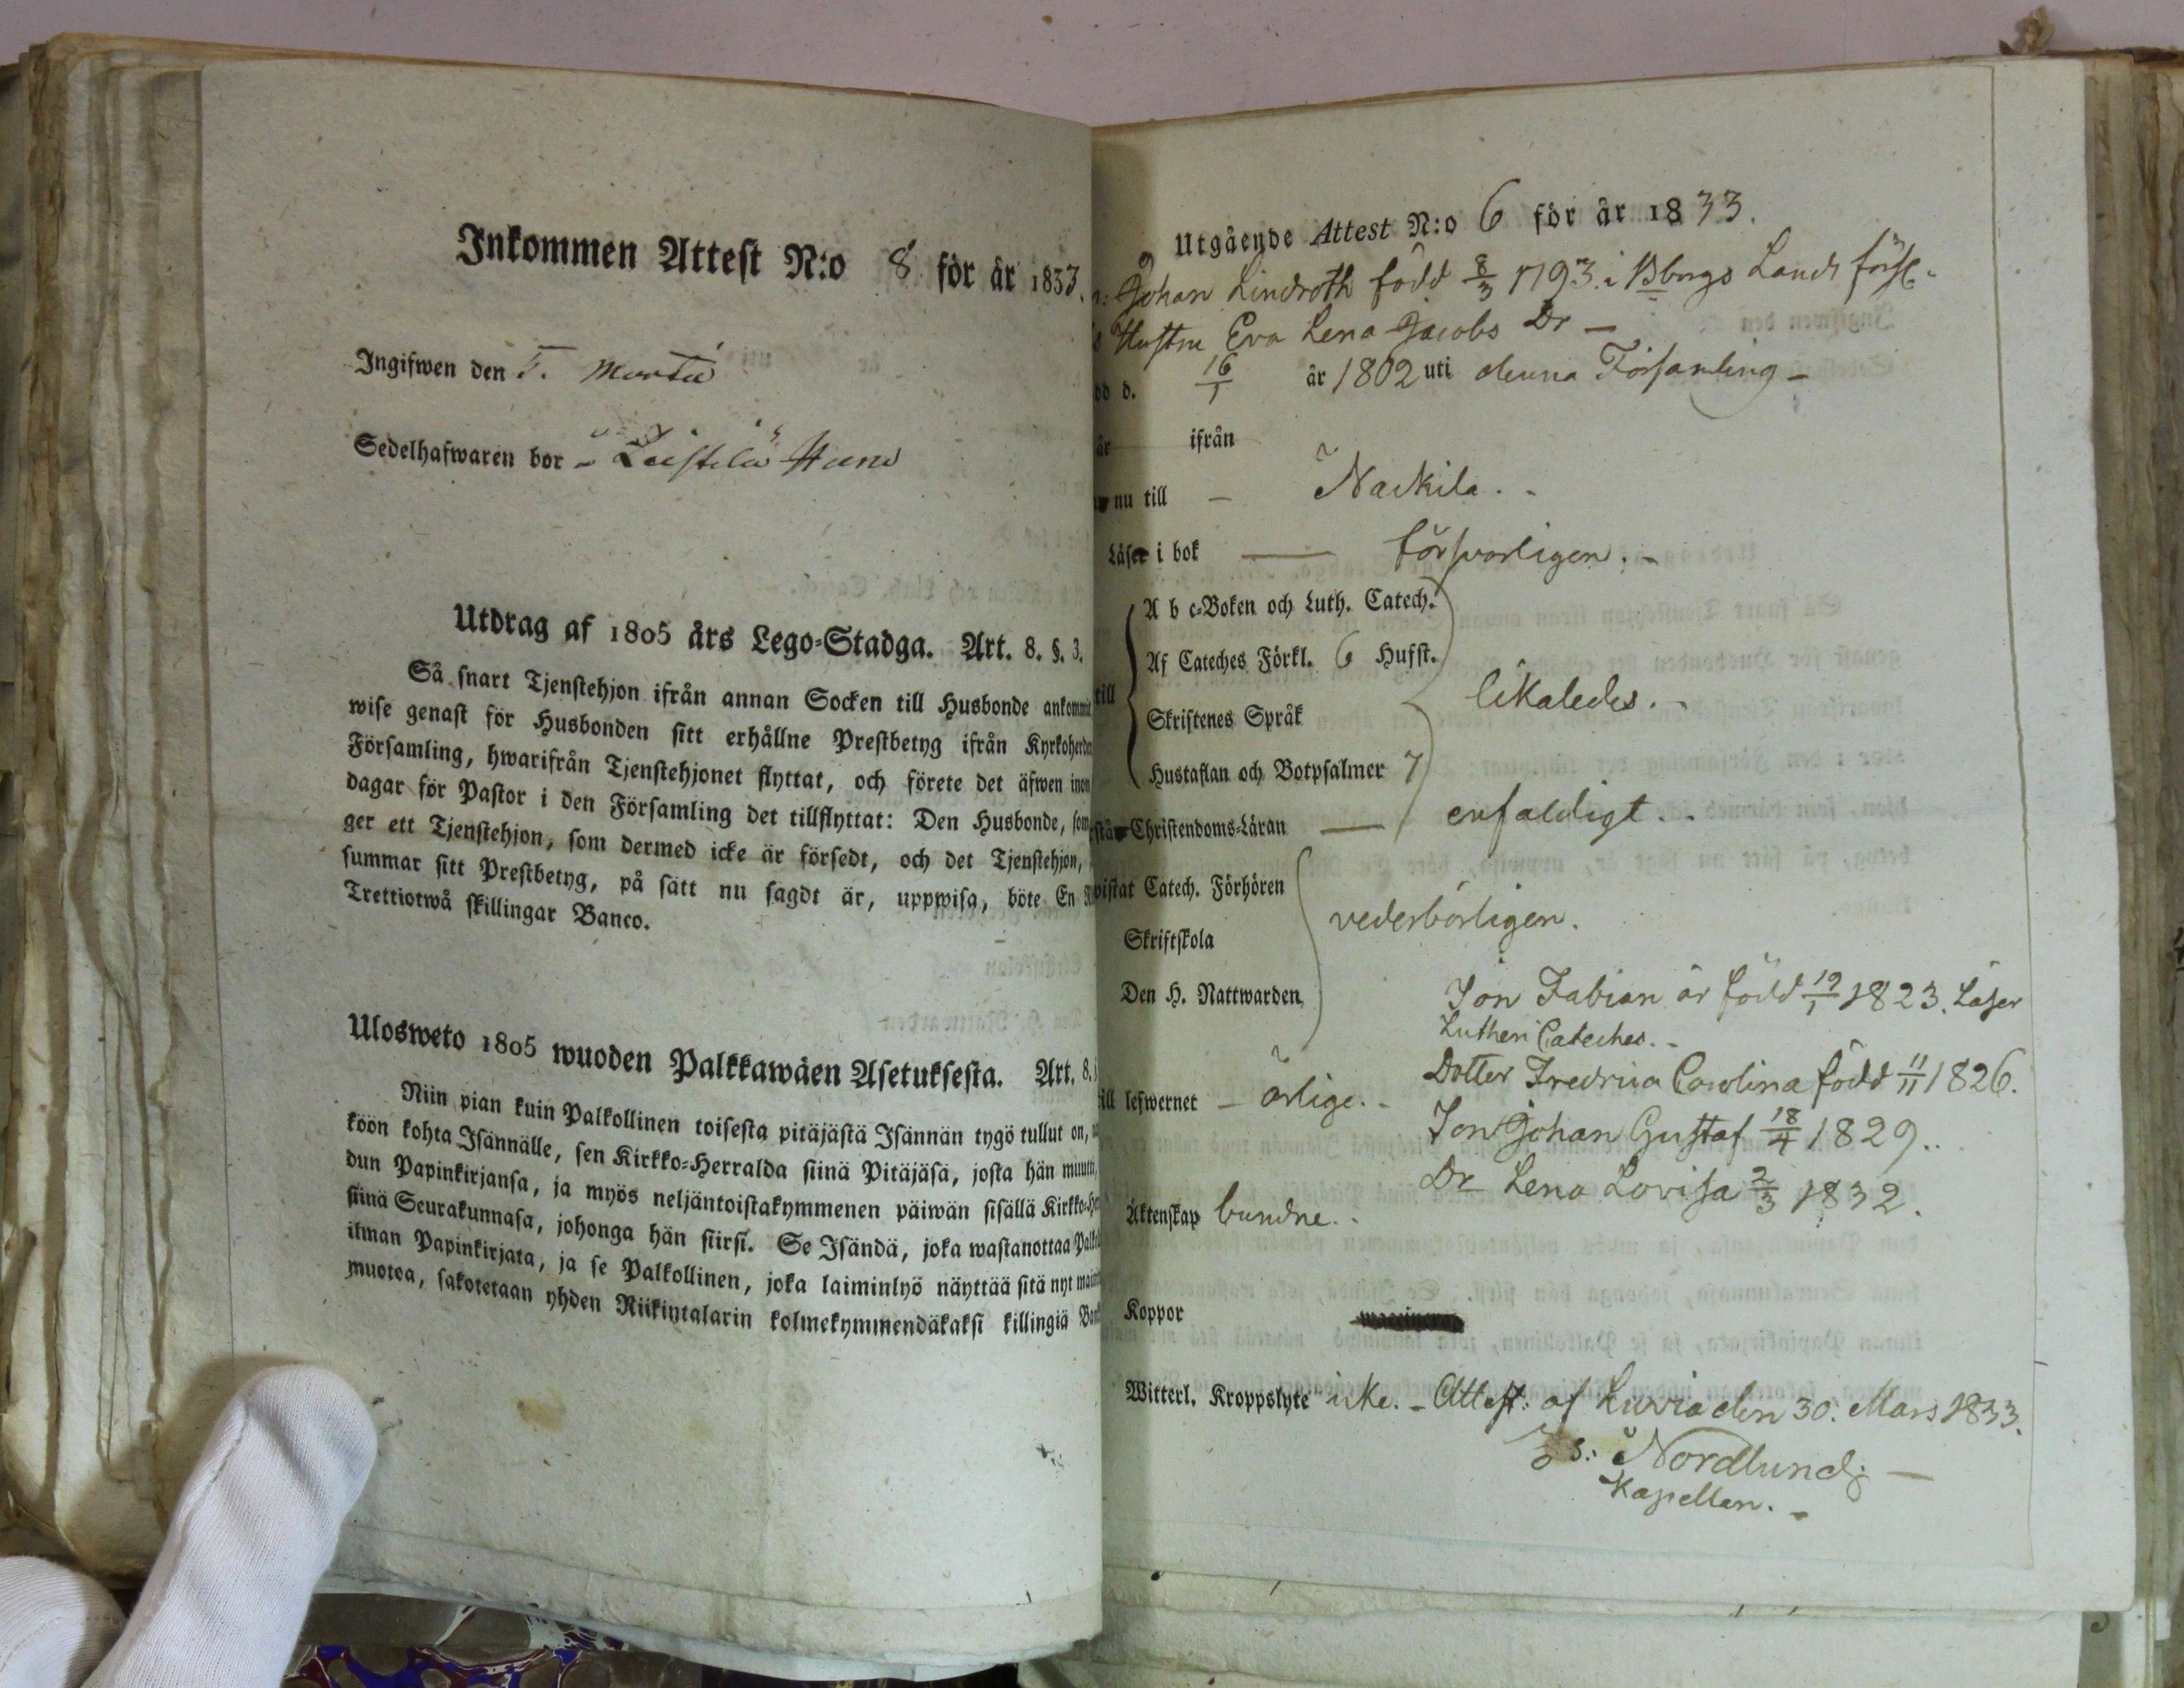 Inkommen Attest N:o 8 för år 1833.
Ingifwen den
Sedelhafwaren bor
Utdrag af 1805 års Lego-Stadga. Art. 8. §. 3.
Så snart Tjenstehjon ifrån annan Socken till Husbonde ankommit
wise genast för Husbonden sitt erhållne Prestbetyg ifrån Kyrkoherden
Församling, hwarifrån Tjenstehjonet flyttat, och förete det äfwen inom
dagar för Pastor i den Församling det tillflyttat: Den Husbonde, som
ger ett Tjenstehjon, som dermed icke är försedt, och det Tjenstehjon,
summar sitt Prestbetyg, på sätt nu sagdt är, uppwisa, böte En
Trettiotwå skillingar Banco.
Ulosweto 1805 wuoden Palkkawäen Asetuksesta. Art. 8.
Niin pian kuin Palkollinen toisesta pitäjästä Isännän tygö tullut on,
köön kohta Isännälle, sen Kirkko-Herralda siinä Pitäjäsä, josta hän muutti,
dun Papinkirjansa, ja myös neljäntoistakymmenen päiwän sisällä Kirkko-Her
siinä Seurakunnasa, johonga hän siirsi. Se Isändä, joka wastanottaa Palko
ilman Papinkirjata, ja se Palkollinen, joka laiminlyö näyttää sitä nyt
muotoa, sakotetaan yhden Riikintalarin kolmekymmendäkaksi killingiä
Utgående Attest N:o 6 för år 1833.
Johan Lindroth född 8/3 1793 i Bborgs Lands förs.
Hustru Eva Lena Jacobs Dr —
dd d. 16/1 år 1802 uti denna Församling —
är ifrån
nu till — Nackila.
Läser i bok — försvarligen. —
A b c-Boken och Luth. Catech.
Af Cateches Förkl. 6 Hufst.
till
likaledes. —
Skriftenes Språk
Hustaflan och Botpsalmer 7
Christendoms-Läran — enfaldigt.
wistat Catech. Förhören
vederbörligen.
Skriftskola
Den H. Nattwarden
Son Fabian är född 19/1 1823. Läser
Lutheri Cateches. —
Dotter Fredrica Carolina född 11/11 1826.
till lefwernet — ärlige. —
Son Johan Gustaf 18/4 1829..
Dr Lena Lovisa 2/3 1832.
Äktenskap bundne.
Koppor
Witterl. Kroppslyte icke. — Attest: af Luvia den 30. Mars 1833.
Nordlund
Kapellan. —